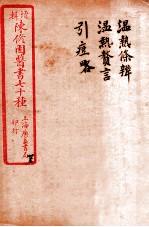 溫熱條辨
溫熱贅言
引痘略
增輯
陳修園醫書七十種
上海廣益書局
印行